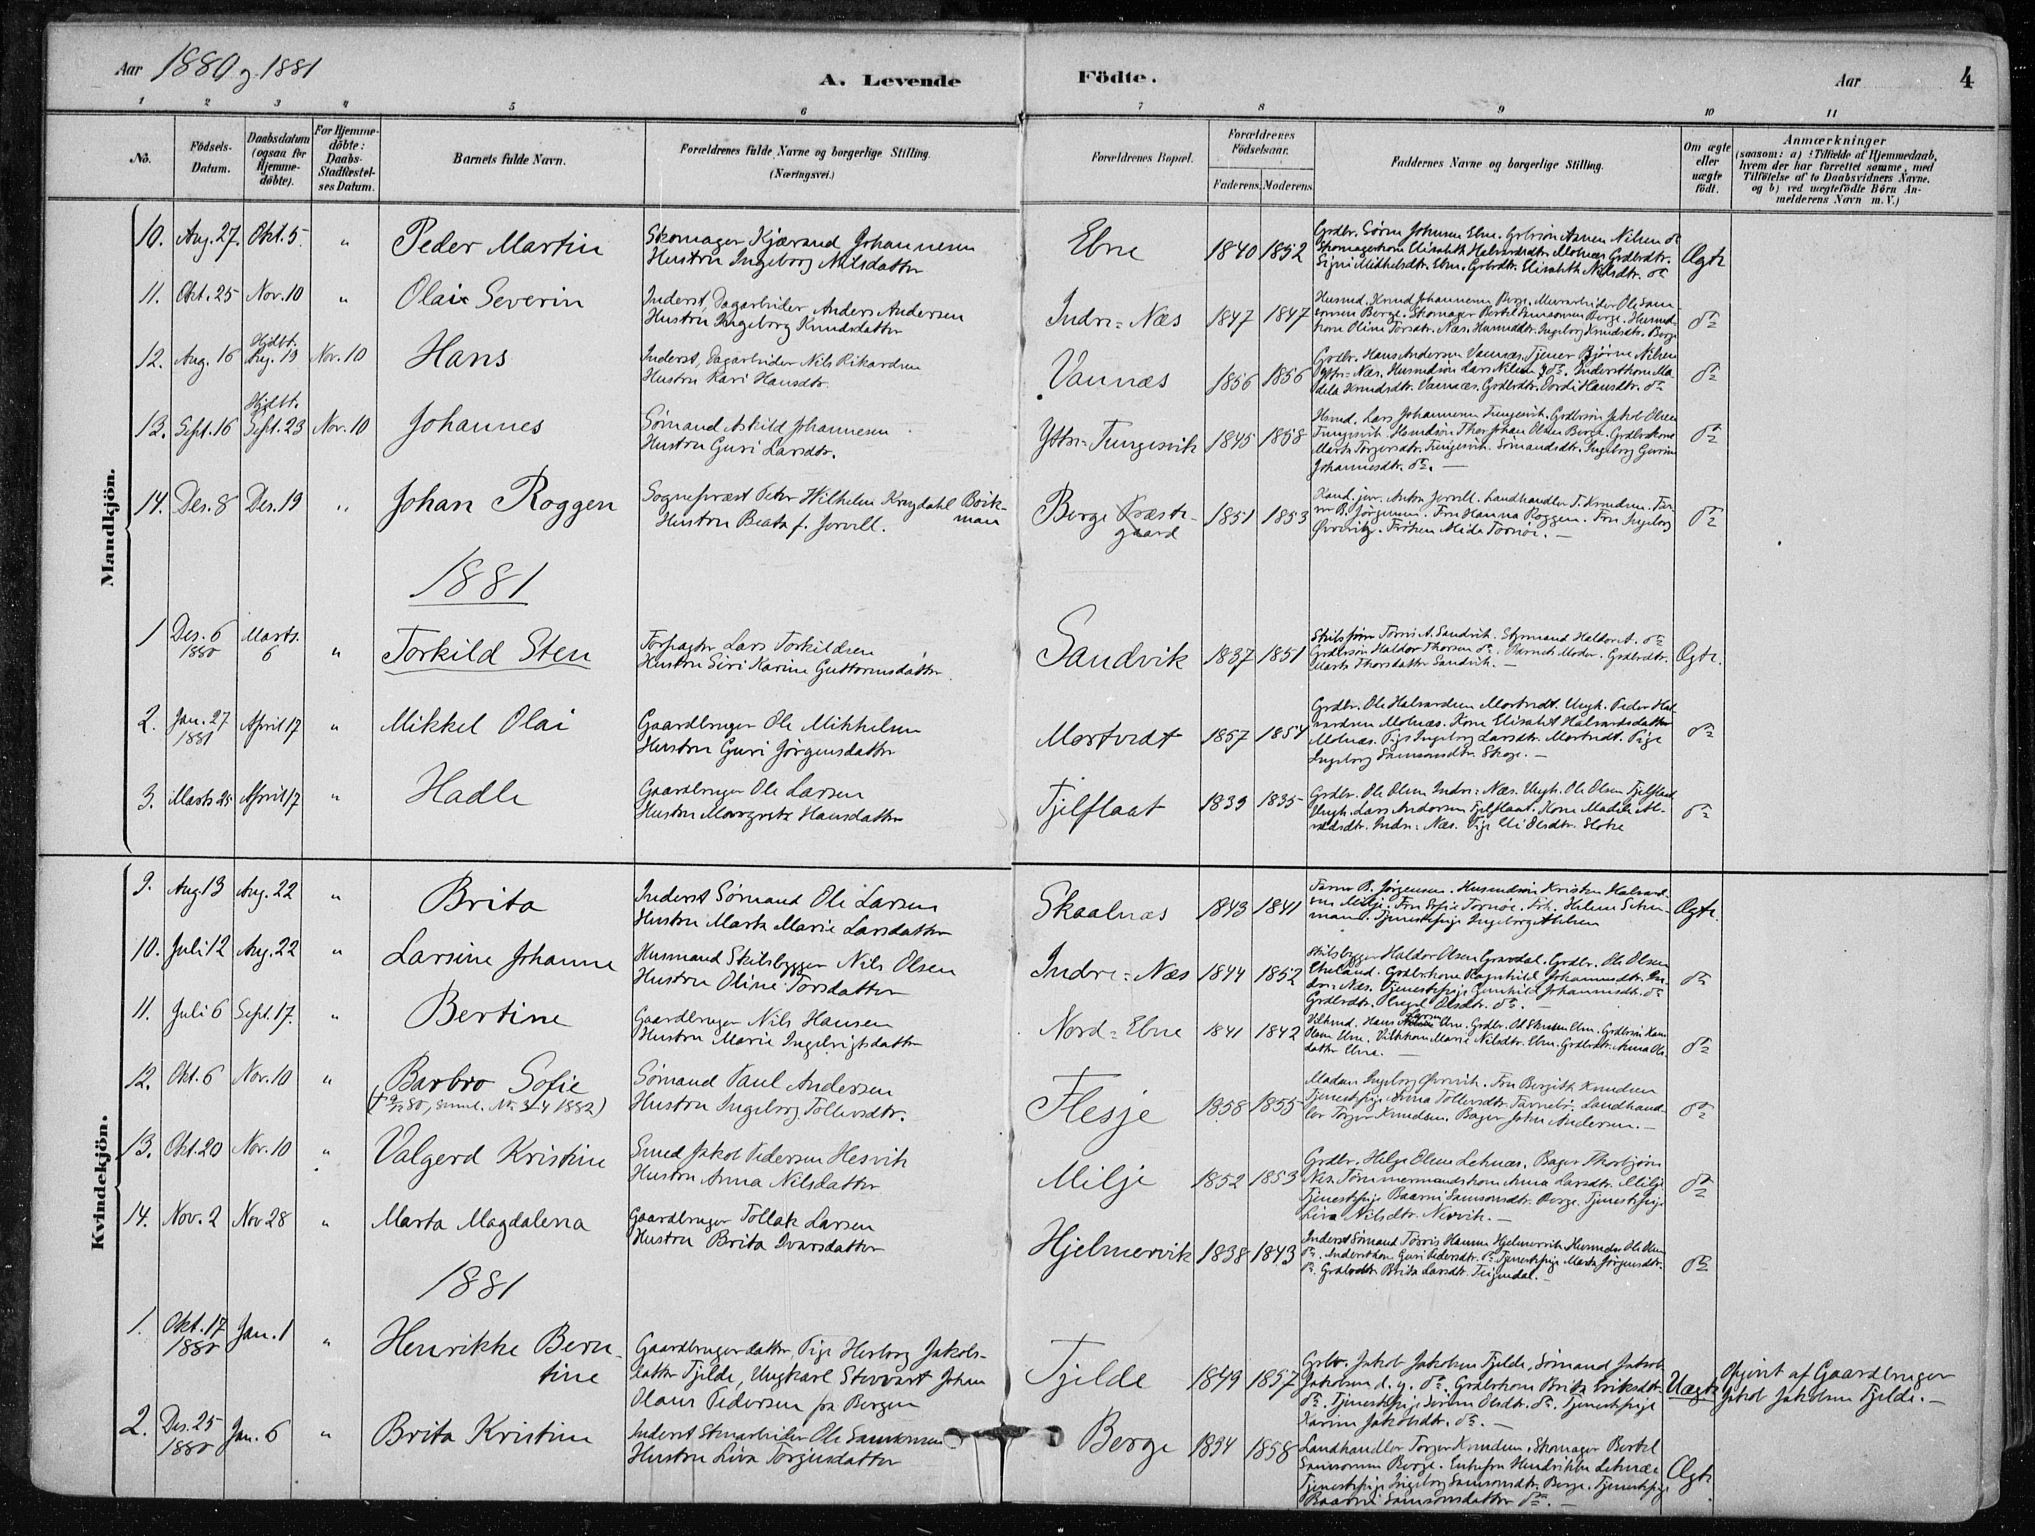 Aar 1880 og 1881
A. Levende Födte.
Aar 4
1 2 3 4 5 6 7 8 9 10 11
No.
Födsels-Datum.
Daabsdatum (ogsaa for Hjemme-döbte).
For Hjemme-döbte: Daabs-Stadfæstel-ses Datum.
Barnets fulde Navn.
Forældrenes fulde Navne og borgerlige Stilling. (Næringsvei.)
Forældrenes Bopæl.
Forældrenes Födselsaar.
Faderens. Moderens.
Faddernes Navne og borgerlige Stilling.
Om ægte eller uægte födt.
Anmærkninger
(saasom: a) i Tilfælde af Hjemmedaab, hvem der har forrettet samme, med Tilföielse af to Daabsvidners Navne, og b) ved uægtefödte Börn An-melderens Navn m. V.)
Mandkjön.
10. Aug. 27. Okt. 5. " Peder Martin
Skomager Kjærand Johannesen
Hustru Ingeborg Nilsdatter
Ebne 1840 1852
Grdbr. Sörn Johnsen Ebne. Grdbrsön Asmen Nilsen do
Skomagerkone Elisabeth Halvardsdtr. Molnæs. Grdbrdtr.
Signi Mikkelsdtr. Ebne. Grdbrdtr. Elisabeth Nilsdtr. do
Ægte
11. Okt. 25 Nov. 10 " Olai Severin
Inderst, Dagarbeider Anders Andersen
Hustru Ingeborg Knudsdatter
Indre=Næs 1847 1847
Husmd. Knud Johannesen Berge. Murarbeider Ole Sam-
sonsen Berge. Skomager Bertil Samsonsen Berge. Husmd-
kone Oline Torsdtr. Næs. Husmddtr. Ingeborg Knudsdtr. Berge
do
12. Aug. 16 Hjdbt. Aug. 19 Nov. 10 Hans
Inderst, Dagarbeider Nils Rikardsen
Hustru Kari Hansdtr.
Vannæs 1856 1856
Grdbr. Hans Andersen Vannæs. Tjener Björne Nilsen
Yttre=Næs. Husmdsön Lars Nilsen do. Inderstkone Ma-
dela Knudsdtr. Vannæs. Grdbrdtr. Dordi Hansdtr. do
do
13. Sept. 16 Hjdbt. Sept. 23 Nov. 10 Johannes
Sömand Askild Johannesen
Hustru Guri Larsdtr.
Yttre=Tungesvik 1845 1858
Husmd. Lars Johannesen Tungesvik. Grdbrsön Jakob Olsen
Tungesvik. Husmdsön Thor Johan Olsen Berge. Grdbrkone
Marta Torgersdtr. Tungesvik. Sömandsdtr. Ingeborg Gurine
Johannesdtr. do. —
do
14. Des. 8 Des. 19 " Johan Roggen
Sognepræst Peter Wilhelm Kreydahl Böck-
man
Hustru Beate f. Jervell.
Berge Præste-
gaard 1851 1853
Kand. jur. Anton Jervell. Landhandler T. Knudsen. Far-
ver B. Jörgensen. Fru Hanna Roggen. Fru Ingeborg
Övrevik. Fröken Mida Tornöe. —
do
1881
1 Des. 6 1880 Marts. 6 " Torkild Sten
Forpagter Lars Torkildsen
Hustru Siri Karine Guttormsdatter
Sandvik 1837 1851
Skibsförer Törris A. Sandvik. Styrmand Haldor A. do
Grdbrsön Haldor Thorsen do. Barnets Moder. Grdbrdtr.
Marta Thorsdatter Sandvik. —
Ægte.
2. Jan. 27 1881 April 17 " Mikkel Olai
Gaardbruger Ole Mikkelsen
Hustru Guri Jörgensdatter
Mortvedt 1857 1854
Grdbr. Ole Halvardsen Mortvedt. Ungk. Peder Hal-
vardsen Molnæs. Kone Elisabet Halvardsdatter
Molnæs. Pige Ingeborg Larsdtr. Mortvedt. Pige
Ingeborg Samsonsdtr. Skoge. —
do
3. Marts 25 April 17 " Hadle
Gaardbruger Ole Larsen
Hustru Margrete Hansdatter
Fjelflaat 1839 1835
Grdbr. Ole Olsen Indre=Næs. Ungk. Ole Olsen Fjelflaat
Ungk. Lars Andersen Fjelflaat. Kone Madela
Indre=Næs. Pige Eli Olsdtr.
do
Kvindekjön.
9. Aug. 13 Aug. 22 " Brita
Inderst Sömand Ole Larsen
Hustru Marta Marie Larsdatter
Skaalnæs 1843 1841
Farver B. Jörgensen. Husmdsön Kristen Halvard-
sen Milje. Fru Sofie Tornöe. Frk. Helene
Tjenestepige Ingeborg
Ægte.
10. Juli 12 Aug. 22 " Larsine Johanne
Husmand Skibsbygger Nils Olsen
Hustru Oline Torsdatter
Indre=Næs 1844 1852
Skibsbygger Haldor Olsen Gravdal. Grdbr. Ole Olsen
Grdbrkone Ragnhild Johannesdtr. In-
dre=Næs. Tjenestepige Gunhild Johannesdtr. do
Grdbrdtr. Olsdtr. do. —
do
11. Juli 6 Sept. 17. " Bertine
Gaardbruger Nils Hansen
Hustru Marie Ingebrigtsdatter
Nord=Ebne 1841 1842
Hans Larsen Ebne. Grdbr. Ebne. Grdbrsön
Olsen Ebne. Marie Nilsdtr. Ebne. Grdbrdtr. Anna Ols-
datter Ebne. —
do
12. Okt. 6 Nov. 10 " Barbro Sofie
Sömand Paul Andersen
Hustru Ingeborg Tollevsdtr.
Flesje 1858 1855
Madam Ingeborg Övrevik. Fru Bergith Knudsen
Tjenestepige Anna Tollevsdtr. Landhand-
ler Torger Knudsen. Bager John Andersen. —
do
13. Okt. 20 Nov. 10 " Valgerd Kristine
Smed Jakob Pedersen Hesvik
Hustru Anna Nilsdatter
Milje 1852 1853
Grdbr. Helge Olsen Letnæs. Bager Thorbjörn
Næs. Tömmermandskone Anna Larsdtr. Milje
Tjenestepige Baarni Samsonsdtr. Berge. Tjenestepige
Liva Nilsdtr. Nervik. —
do
14. Nov. 2 Nov 28 " Marta Magdalena
Gaardbruger Tollak Larsen
Hustru Brita Ivarsdatter
Hjelmervik 1838 1843
Inderst Sömand Törris Hansen Hjelmervik. Husmdsn Ole Olsen
do. Inderstkone Guri Pedersdtr. do Tjenestepige Marta Jörgensdtr.
do. Grdbrdtr. Brita Larsdtr. Teigendal. —
do
1881
1. Okt. 17 1880 Jan. 1 " Henrikke Bern-
tine
Gaardbrugerdatter, Pige Herborg Jakobs-
datter Fjelde, Ungkarl Stuvart Johan
Olaus Pedersen fra Bergen
Fjelde 1849 1857
Grbr. Jakob Jakobsen Fjelde, Sömand Jakob
Jakobsen d. y. do. Grdbrkone Brita Eriksdtr.
do. Tjenestepige Sörine Olsdtr. do. Tjenestepige
Karine Jakobsdtr. do. —
Uægte
Opgivet af Gaardbruger
Jakob Jakobsen Fjelde. —
2. Des. 25 1880 Jan. 6 " Brita Kristine
Inderst Stenarbeider Ole Samsonsen
Hustru Liva Torgersdatter
Berge 1854 1858
Landhandler Torger Knudsen, Skomager Bertel
Samsonsen Berge. Enkefru Hendrikke Letnæs
Tjenestepige Ingeborg Samsonsdtr. Berge. Tjenestepige
Baarni Samsonsdatter do. —
Ægte